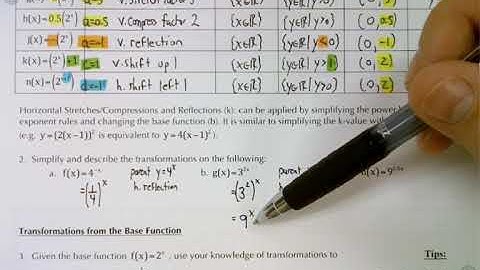 h(x)=0.5(2ˣ) a=0.5 v. compress factor 2 {x∈ℝ} {y∈ℝ|y>0} (0, 0.5)
j(x)=-(2ˣ) a=-1 v. reflection {x∈ℝ} {y∈ℝ|y<0} (0, -1)
k(x)=2ˣ+1 c=1 v. shift up 1 {x∈ℝ} {y∈ℝ|y>1} (0, 2)
n(x)=(2ˣ⁺¹) d=-1 h. shift left 1 {x∈ℝ} {y∈ℝ|y>0} (0, 2)
Horizontal Stretches/Compressions and Reflections (k): can be applied by simplifying the power
exponent rules and changing the base function (b). It is similar to simplifying the k-value with
(e.g. y=(2(x-1))² is equivalent to y=4(x-1)²).
2. Simplify and describe the transformations on the following:
a. f(x)=4⁻ˣ parent y=4ˣ b. g(x)=3²ˣ parent
=(1/4)ˣ h. reflection =(3²)ˣ h.
=9ˣ
Transformations from the Base Function
1. Given the base function f(x)=2ˣ, use your knowledge of transformations to Tips: